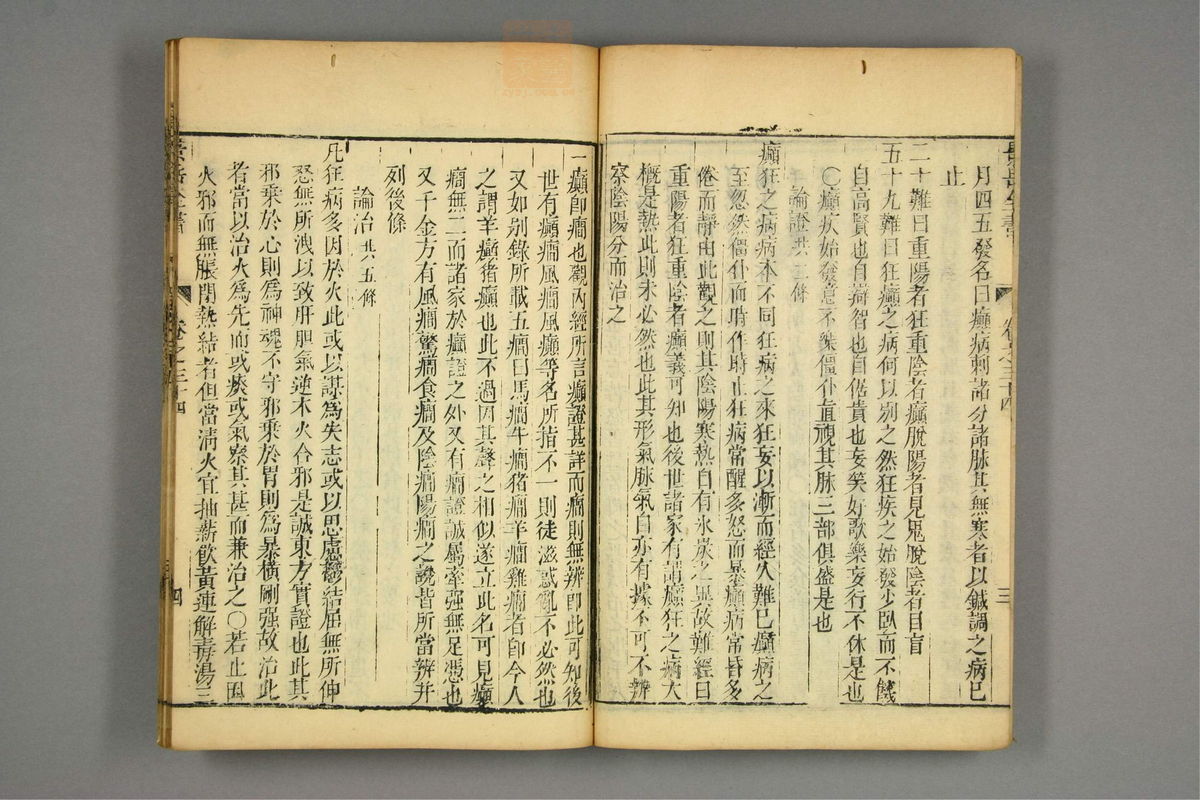 月四五發名曰癲病刺諸分諸脉其無寒者以鍼調之病已
止
二十難曰重陽者狂重陰者癲脫陽者見鬼脫陰者目盲
五十九難曰狂癲之病何以別之然狂疾之始發少臥而不饑
自高賢也自辯智也自倨貴也妄笑好歌樂妄行不休是也
〇癲疾始發意不樂僵仆直視其脉三部俱盛是也
論證共二條
癲狂之病病本不同狂病之來狂妄以漸而經久難已癲病之
至忽然僵仆而時作時止狂病常醒多怒而暴癲病常昏多
倦而靜由此觀之則其陰陽寒熱自有氷炭之異故難經曰
重陽者狂重陰者癲義可知也後世諸家有謂癲狂之病大
槪是熱此則未必然也此其形氣脉氣自亦有據不可不辨
察陰陽分而治之
卷之三十四
三
一癲卽癇也觀內經所言癲證甚詳而癇則無辨卽此可知後
世有癲癇風癇風癲等名所指不一則徒滋惑亂不必然也
又如別錄所載五癇曰馬癇牛癇猪癇羊癇雞癇者卽今人
之謂羊癲猪癲也此不過因其聲之相似遂立此名可見癲
癇無二而諸家於癲證之外又有癇證誠屬牽强無足憑也
又千金方有風癇驚癇食癇及陰癇陽癇之說皆所當辨并
列後條
論治共五條
凡狂病多因於火此或以謀爲失志或以思慮鬱結屈無所伸
怒無所洩以致肝胆氣逆木火合邪是誠東方實證也此其
邪乗於心則爲神魂不守邪乗於胃則爲暴橫剛强故治此
者當以治火爲先而或痰或氣察其甚而兼治之〇若止因
火邪而無脹閉熱結者但當淸火宜抽薪飲黃連解毒湯三
景岳全書
卷之三十四
四